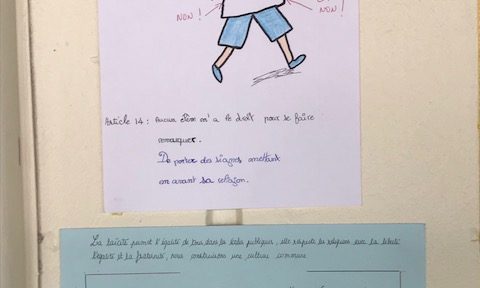 NON !
NON !
Article 14 : Aucun élève n'a le droit pour se faire
remarquer.
De porter des signes mettant
en avant sa religion.
La laïcité permet l'égalité de tous dans les écoles publiques, elle respecte les religions avec la liberté
l'égalité et la fraternité, nous construisons une culture commune